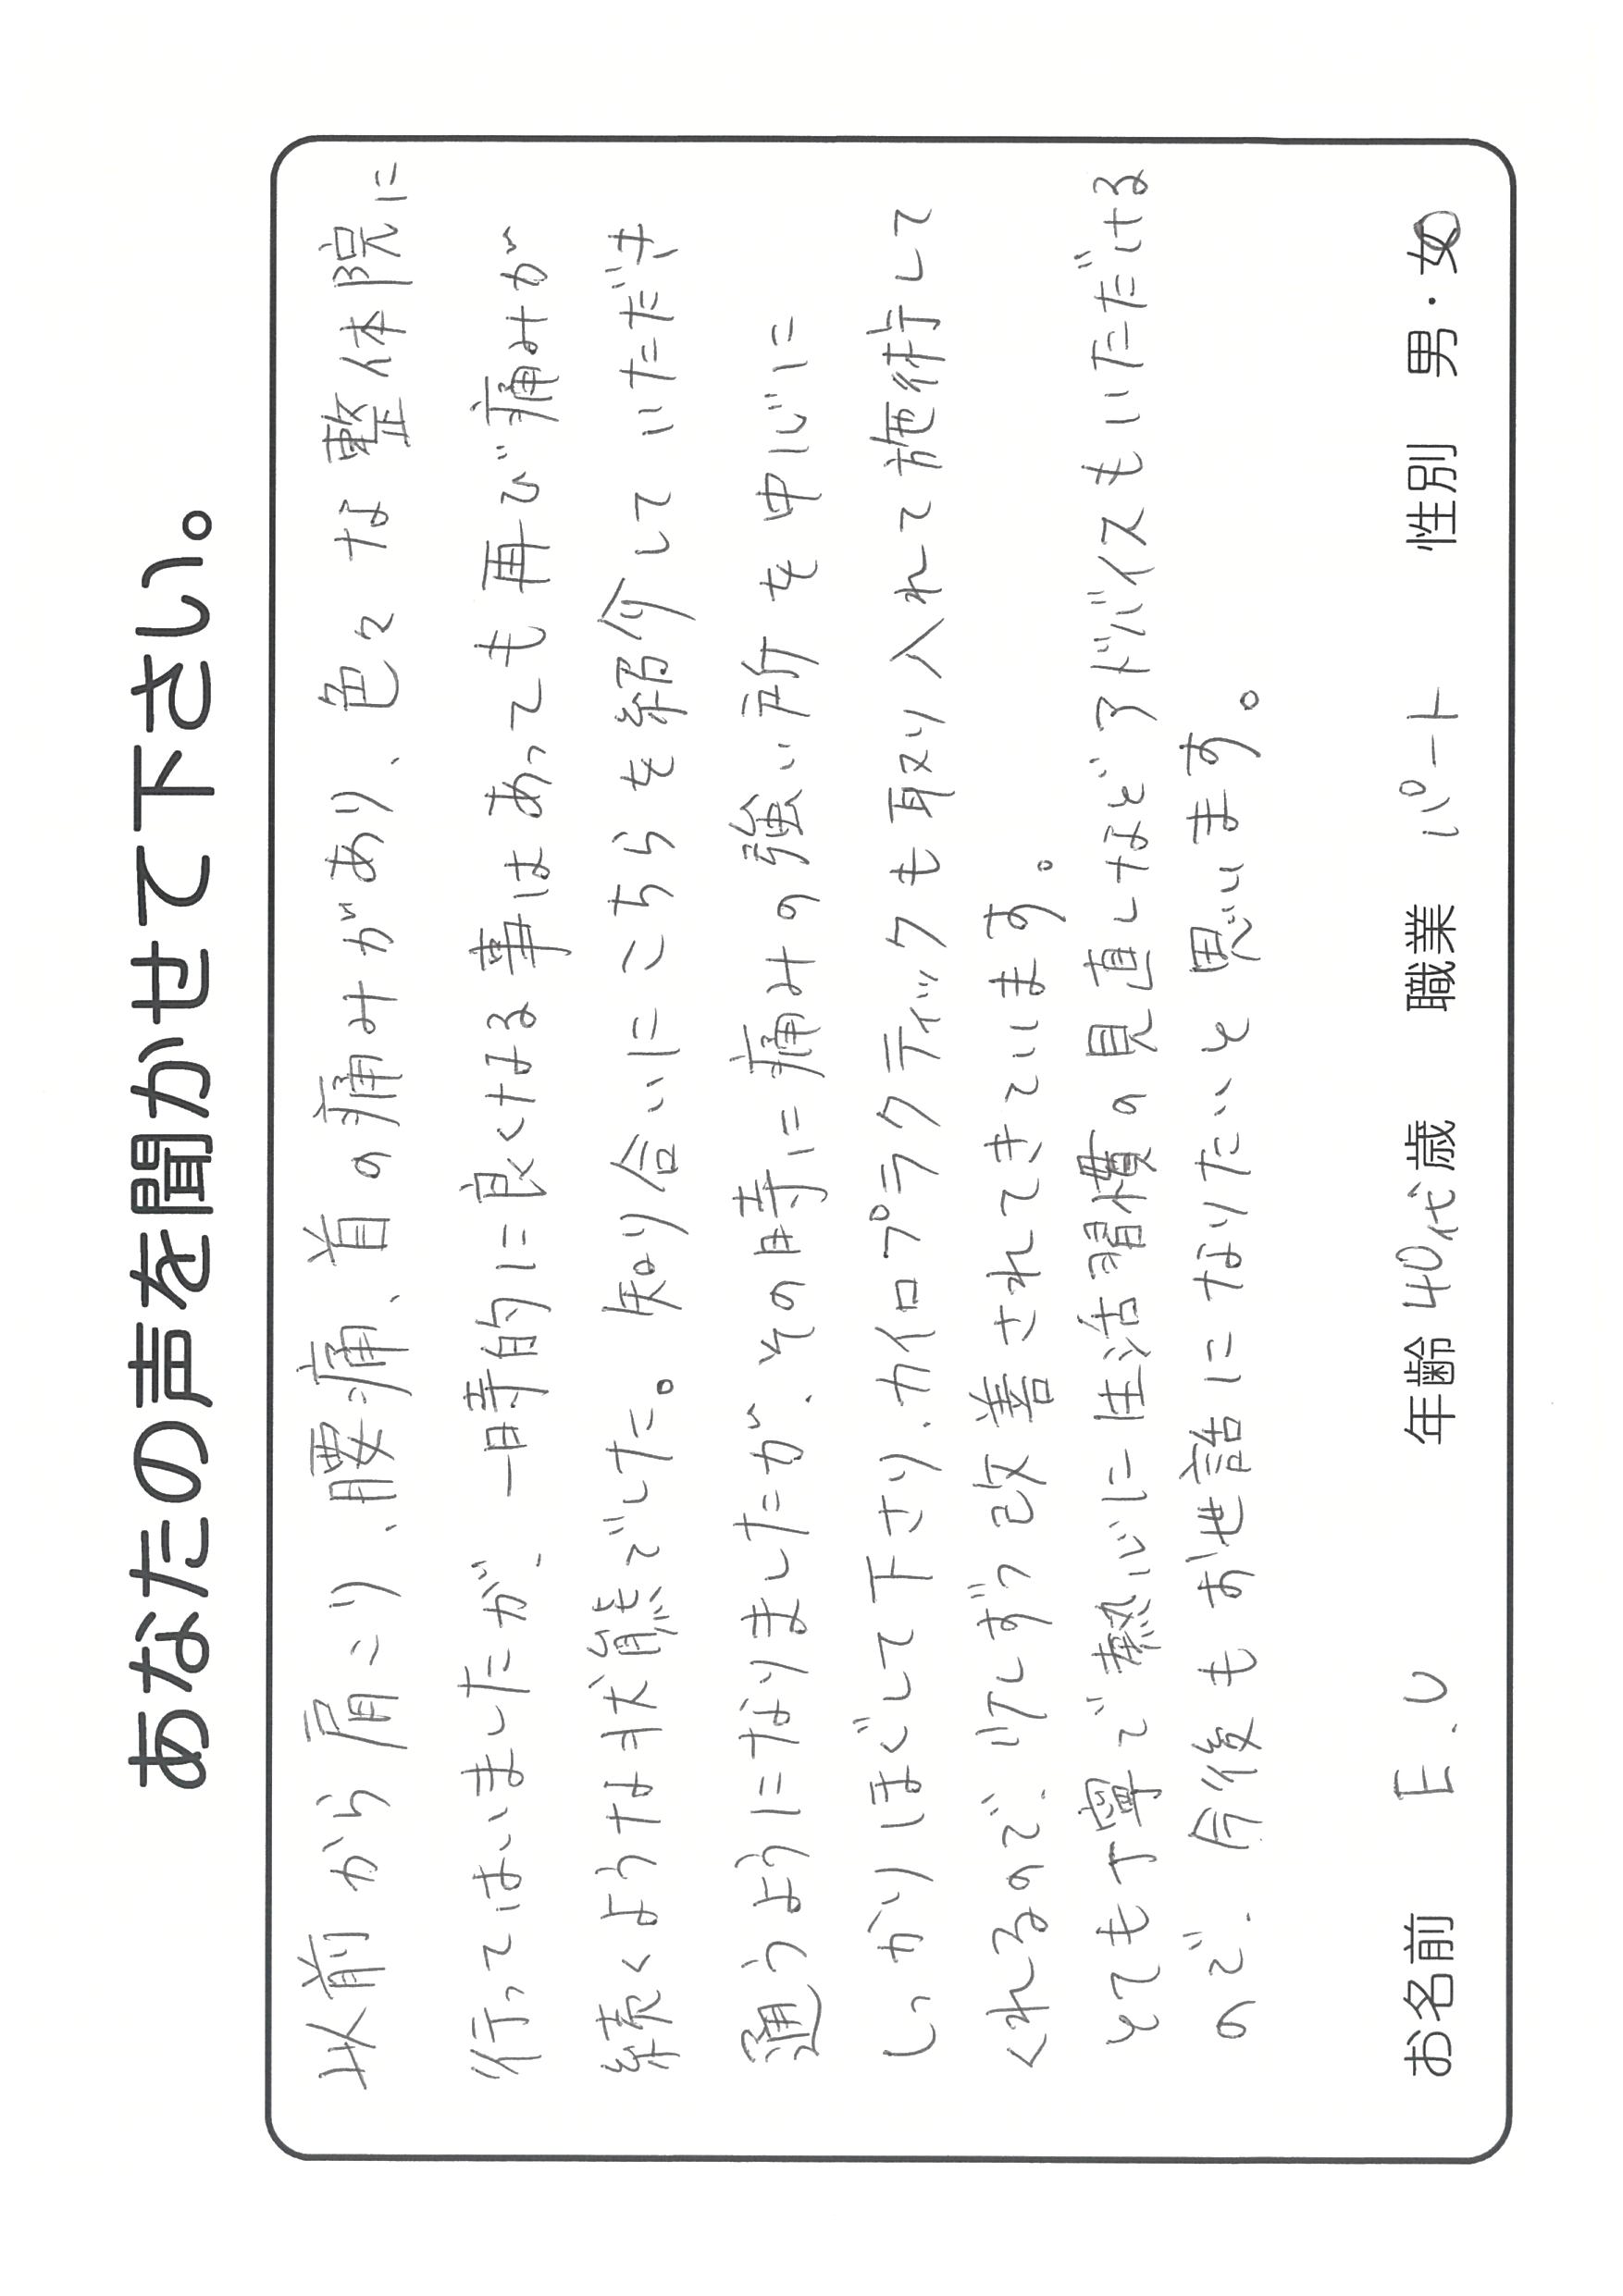 あなたの声を聞かせて下さい。
以前から肩こり、腰痛、首の痛みがあり、色々な整体院に
行ってはいましたが、一時的に良くなる事はあっても再び痛みが
続くような状態でした。知り合いにこちらを紹介していただき
通うようになりましたが、その時に痛みの強い所を中心に
しっかりほぐして下さり、カイロプラクティックも取り入れて施術して
くれるので、少しずつ改善されてきています。
とても丁寧で熱心に生活習慣の見直しなどアドバイスもいただける
ので、今後もお世話になりたいと思います。
お名前 E.U 年齢 40代歳 職業 パート 性別 男・女